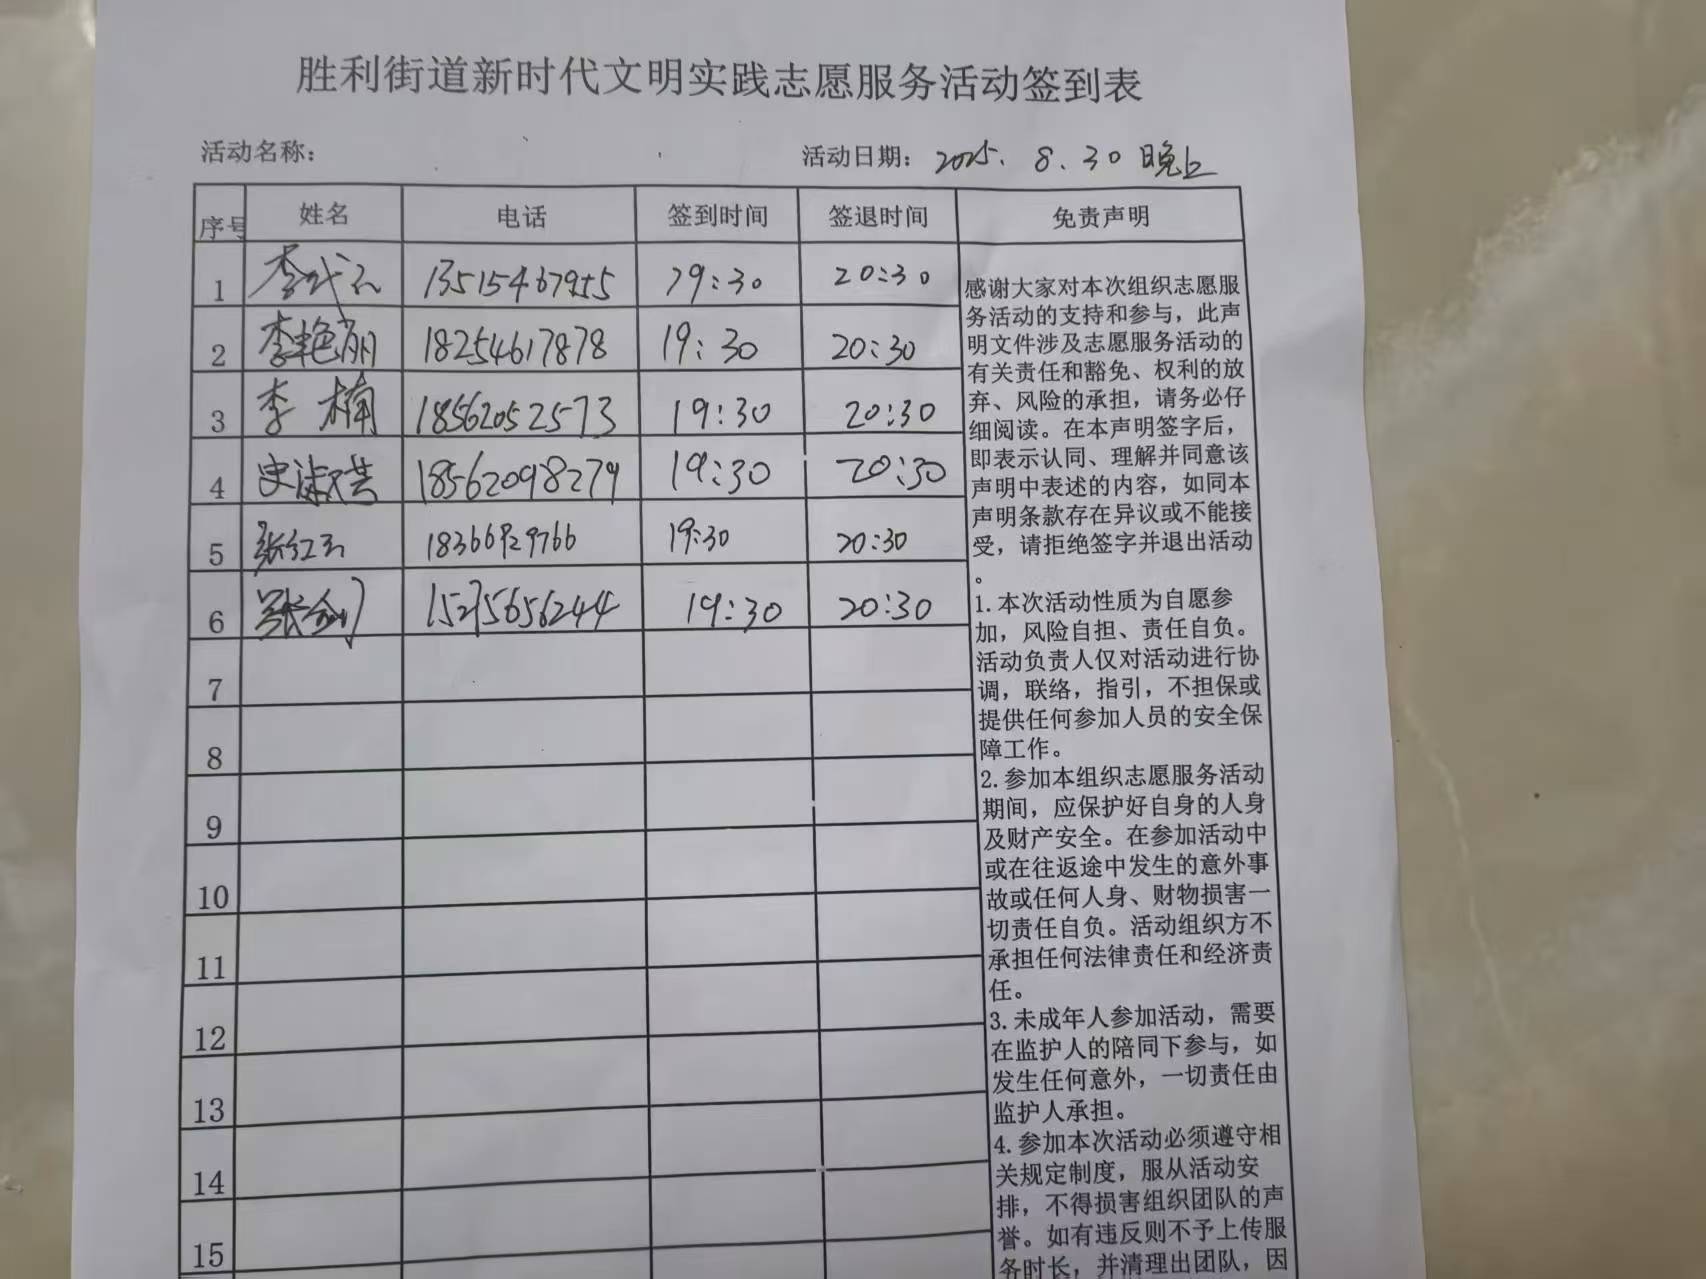 胜利街道新时代文明实践志愿服务活动签到表
活动名称： 活动日期：2025.8.30晚上
序号 姓名 电话 签到时间 签退时间 免责声明
1 李 13515467955 19:30 20:30
2 李艳丽 18254617878 19:30 20:30
3 李楠 18562052573 19:30 20:30
4 史淑英 18562098279 19:30 20:30
5 张红 18366929766 19:30 20:30
6 张剑 15275656244 19:30 20:30
7
8
9
10
11
12
13
14
15
感谢大家对本次组织志愿服
务活动的支持和参与，此声
明文件涉及志愿服务活动的
有关责任和豁免、权利的放
弃、风险的承担，请务必仔
细阅读。在本声明签字后，
即表示认同、理解并同意该
声明中表述的内容，如同本
声明条款存在异议或不能接
受，请拒绝签字并退出活动
。
1.本次活动性质为自愿参
加，风险自担、责任自负。
活动负责人仅对活动进行协
调，联络，指引，不担保或
提供任何参加人员的安全保
障工作。
2.参加本组织志愿服务活动
期间，应保护好自身的人身
及财产安全。在参加活动中
或在往返途中发生的意外事
故或任何人身、财物损害一
切责任自负。活动组织方不
承担任何法律责任和经济责
任。
3.未成年人参加活动，需要
在监护人的陪同下参与，如
发生任何意外，一切责任由
监护人承担。
4.参加本次活动必须遵守相
关规定制度，服从活动安
排，不得损害组织团队的声
誉。如有违反则不予上传服
务时长，并清理出团队，因